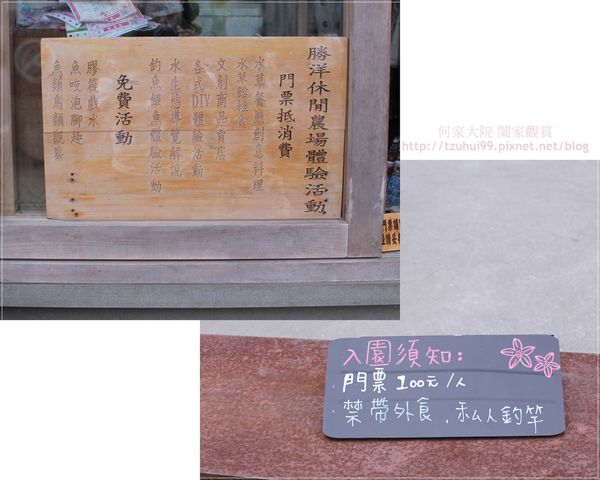 勝洋休閒農場體驗活動
門票抵消費
水草餐廳創意料理
水草館輕食
文創商品賣店
各式DIY體驗活動
水生態導覽解說
釣魚餵魚體驗活動
免費活動
膠筏戲水
魚咬泡聊趣
魚類鳥類觀察
何家大院 闔家觀賞
http://tzuhui99.pixnet.net/blog
入園須知:
門票 100元/人
禁帶外食、私人釣竿